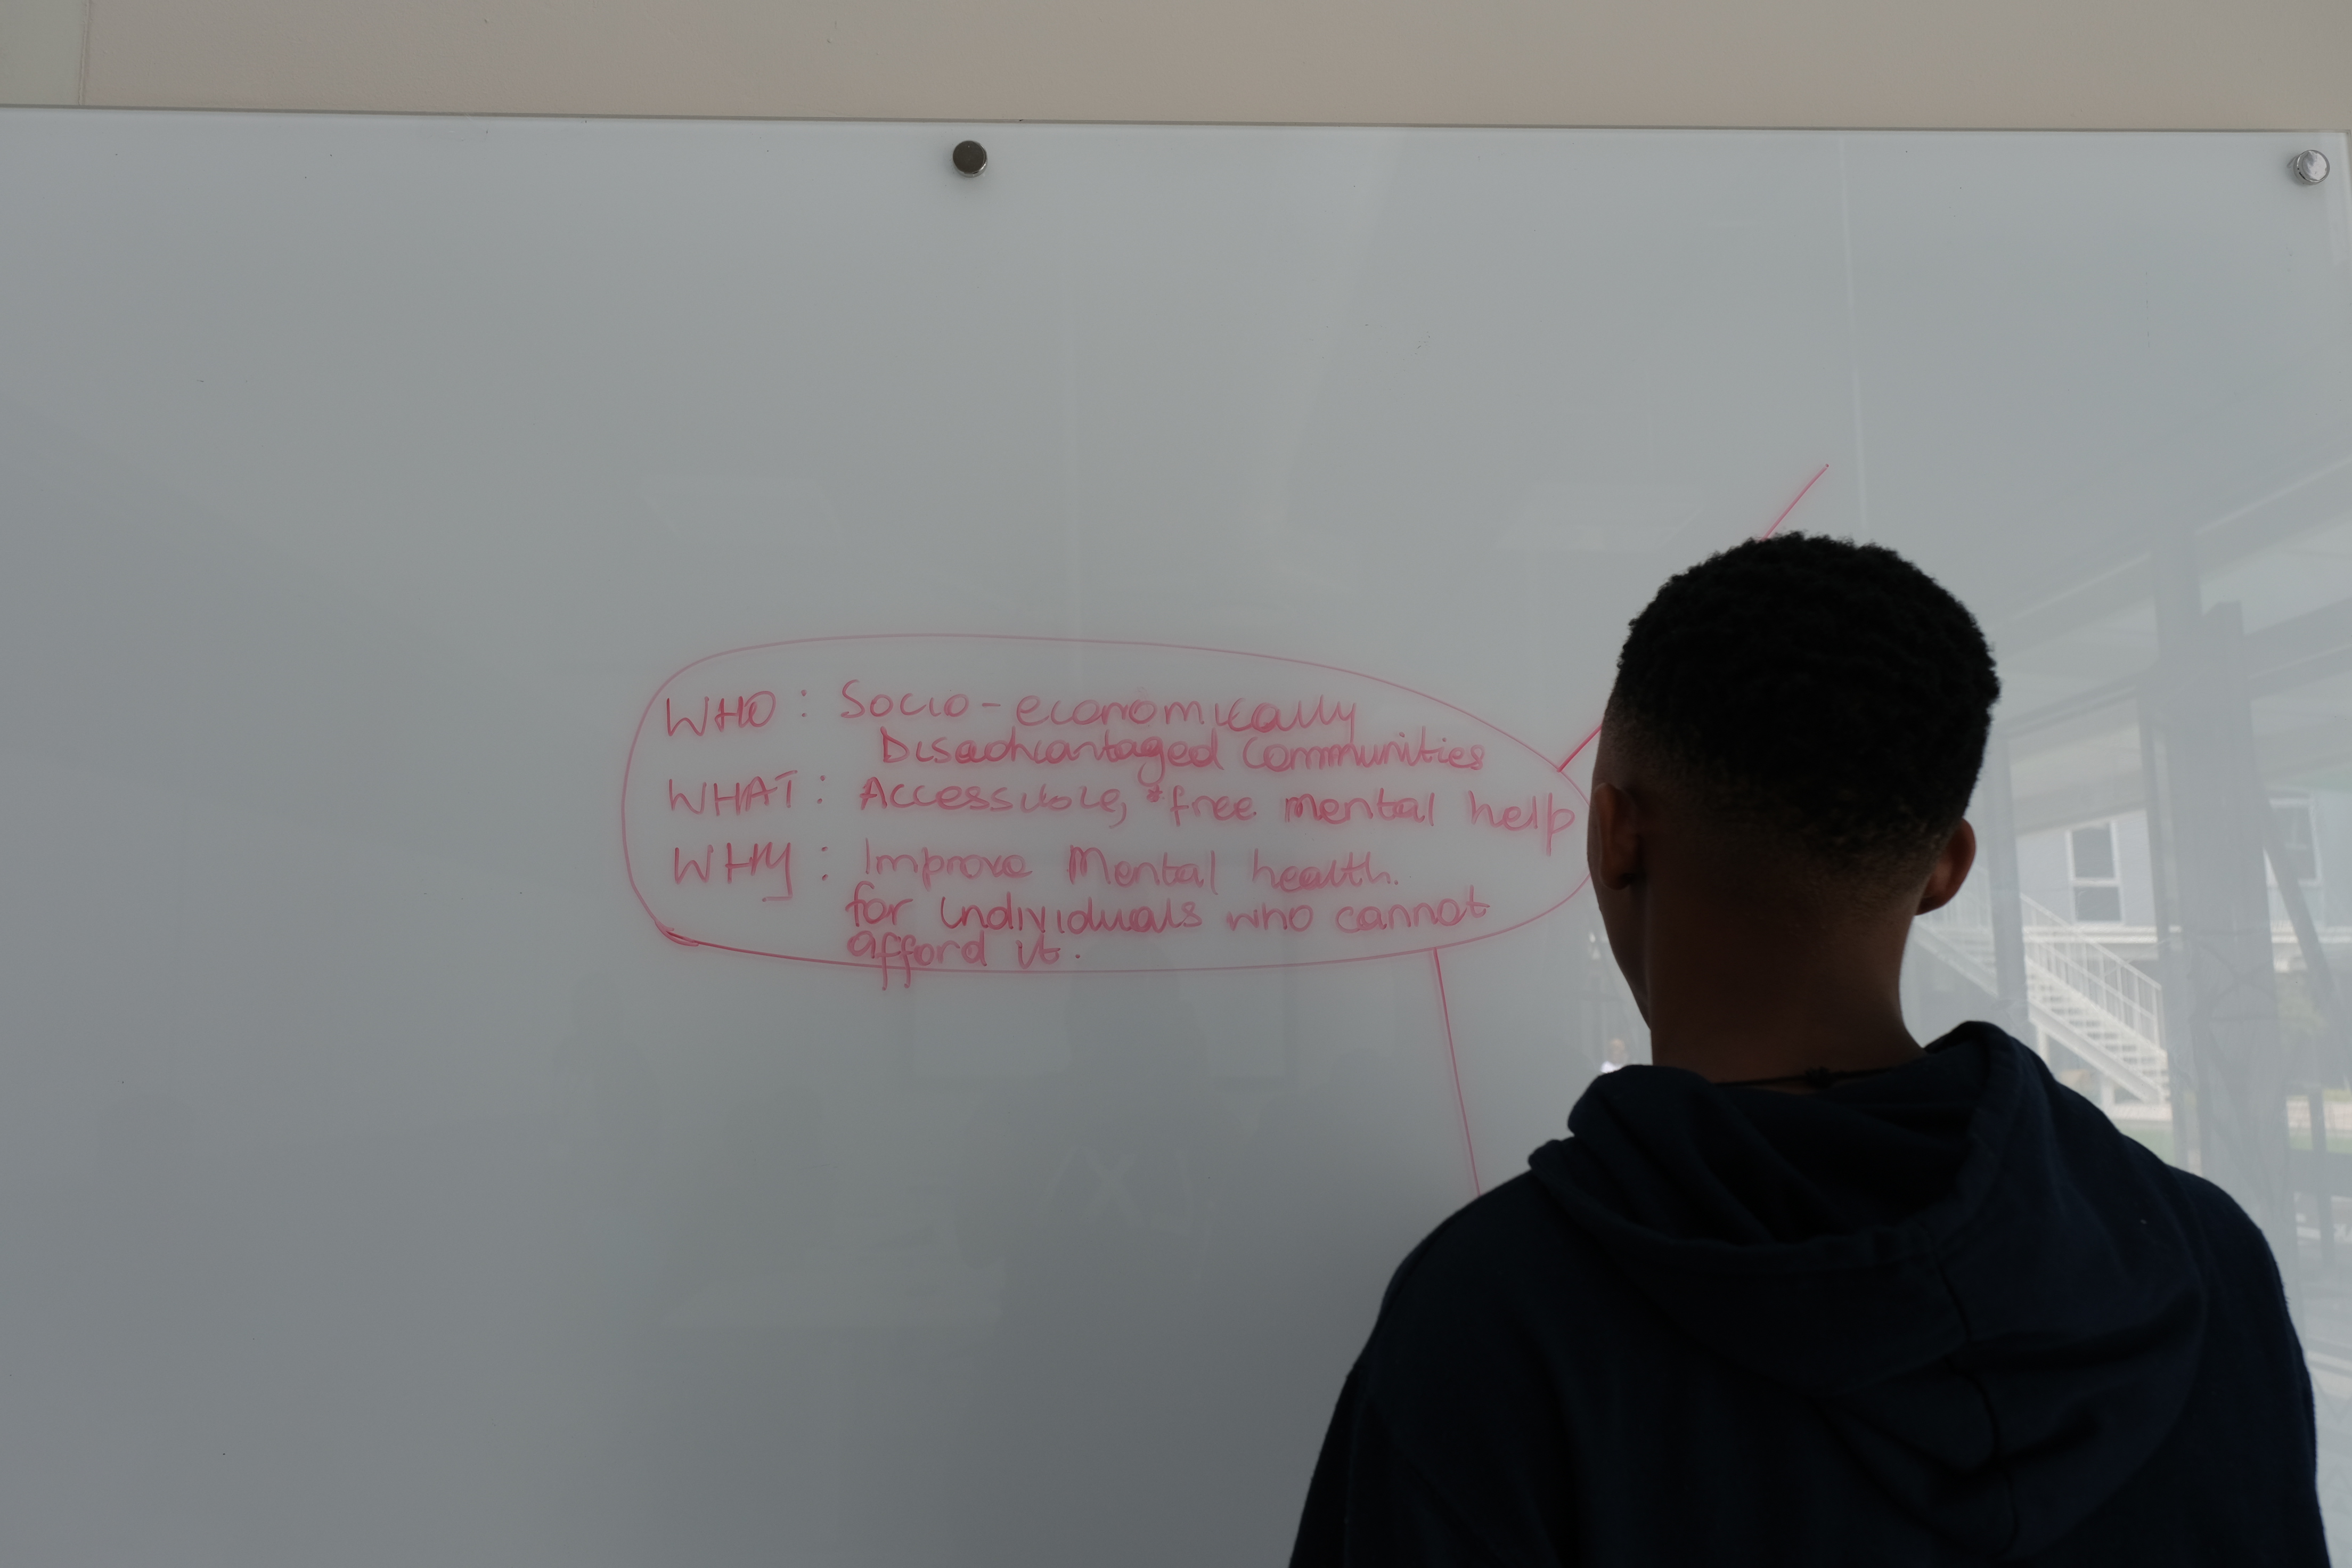 WHO : Socio-economically
Disadvantaged Communities
WHAT : Accessible, *free mental help
WHY : Improve Mental health.
for individuals who cannot
afford it.